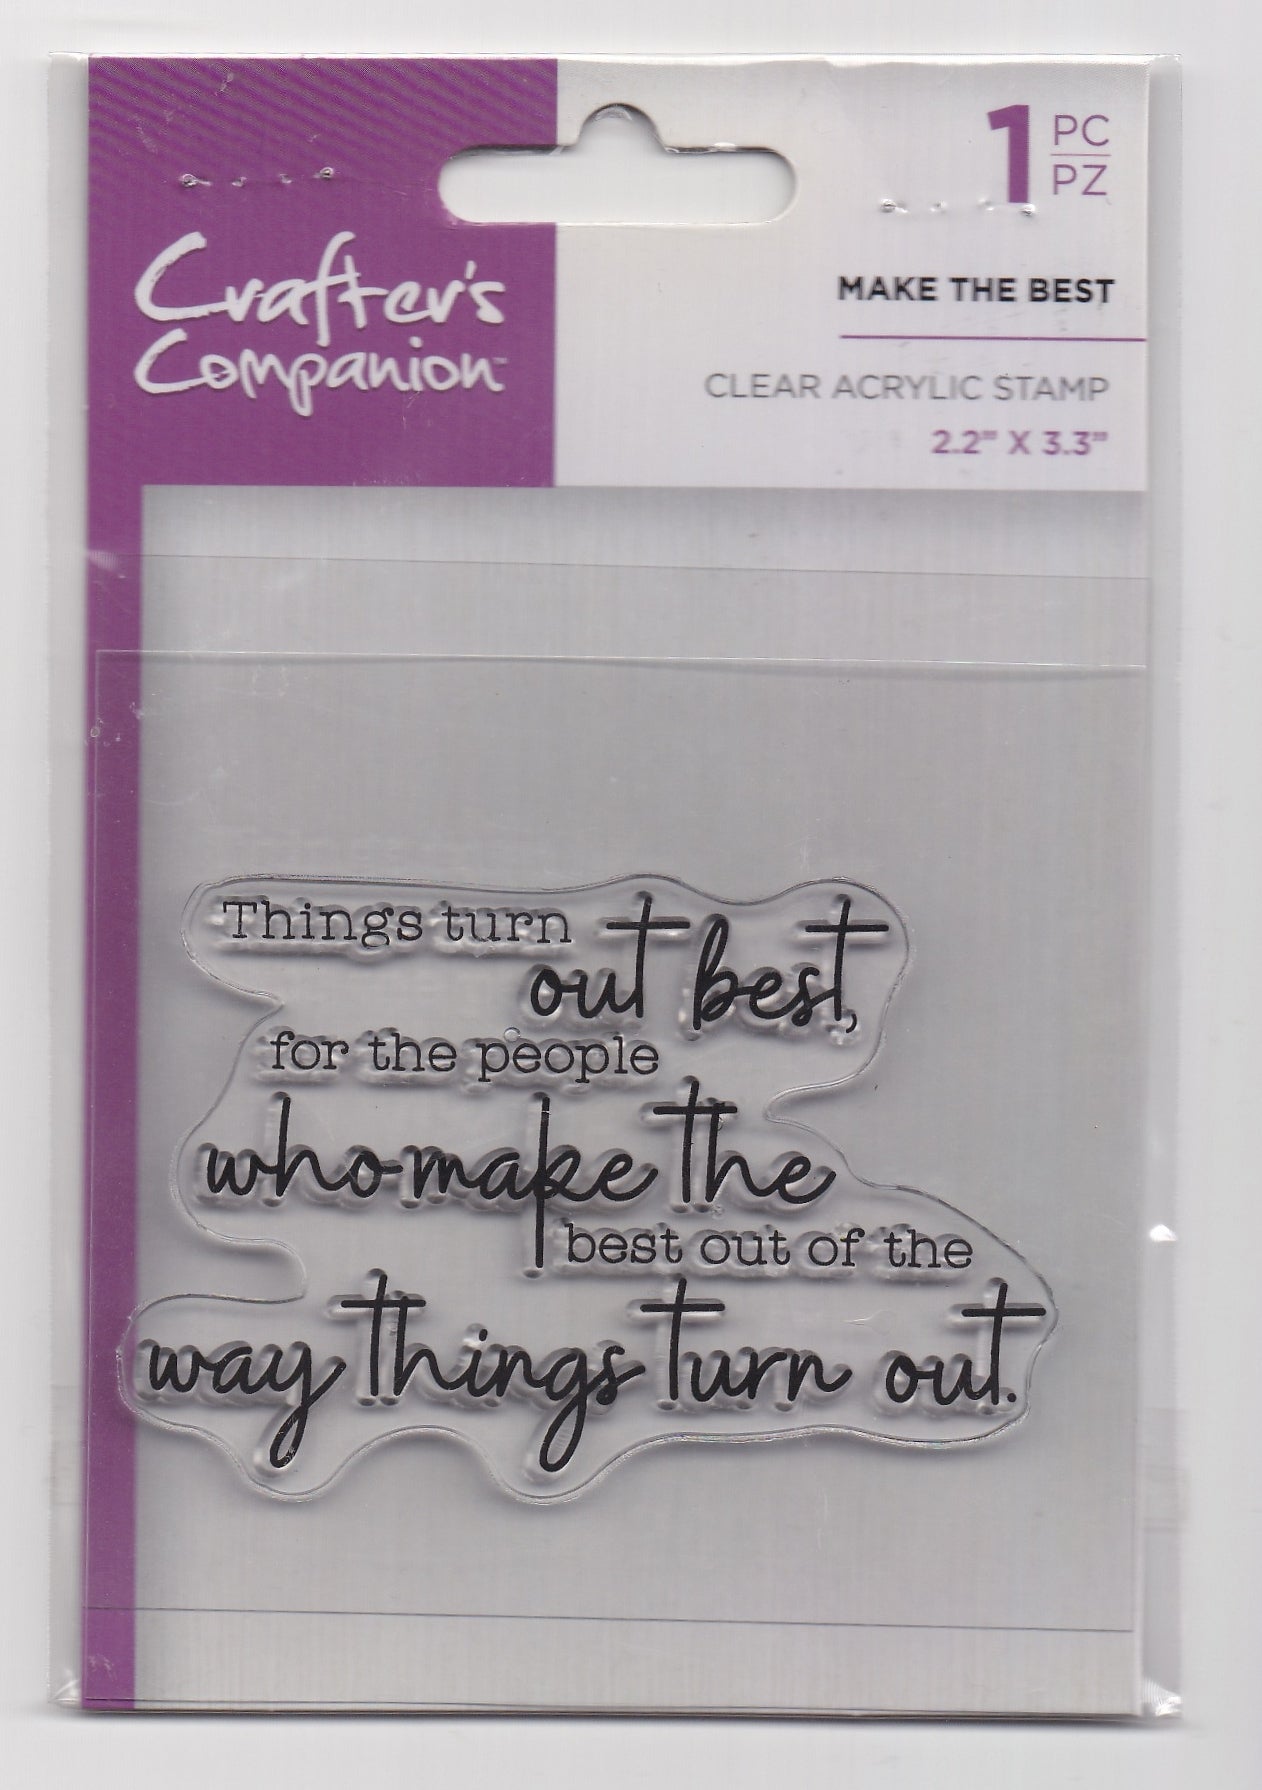 Crafter's
Companion™
1 PC
PZ
MAKE THE BEST
CLEAR ACRYLIC STAMP
2.2” X 3.3”
Things turn
out best,
for the people
who make the
best out of the
way things turn out.